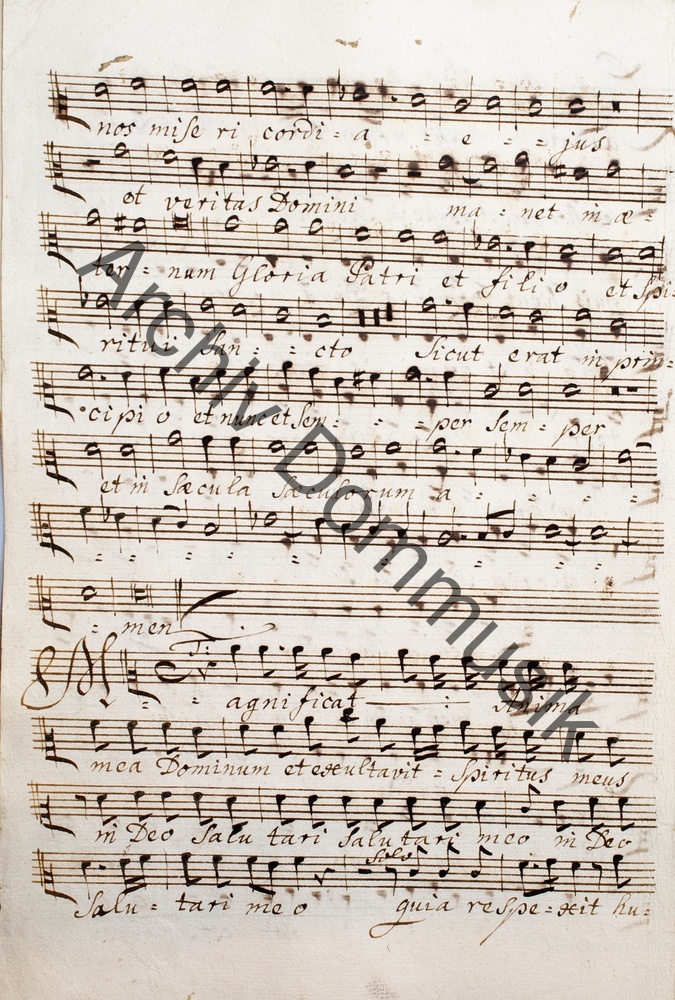 nos mise ri cordi = a - e - = jus
et veritas Domini ma = net in æ =
ter = num Gloria Patri et fili o et Spi =
ritui San = = cto Sicut erat in prin =
cipi o et nunc et Sem = = = per Sem = per
et in Sæcula Sæculorum a = = =
= = = = = = =
= men
T:
M = = agnificat — : — Anima
mea Dominum et exultavit = Spiritus meus
in Deo Salu tari Salutari meo in Deo
Solo
Salu = tari me o quia respe = xit hu =
Archiv Dommusik